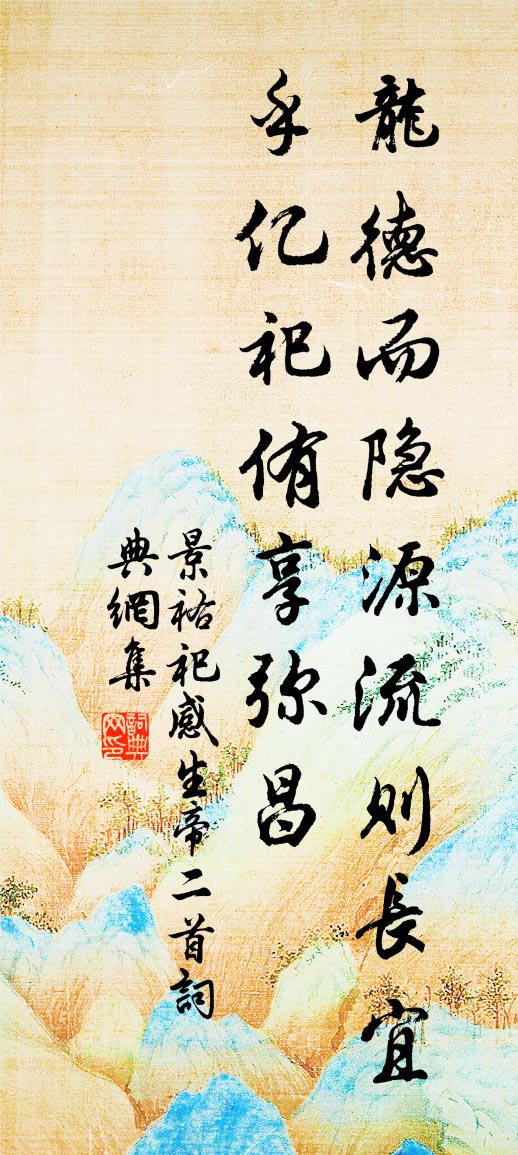 龍德而隐源流则長宜
乎亿祀侑享弥昌
景祐祀感生帝二首詞
典網集
詞典网印